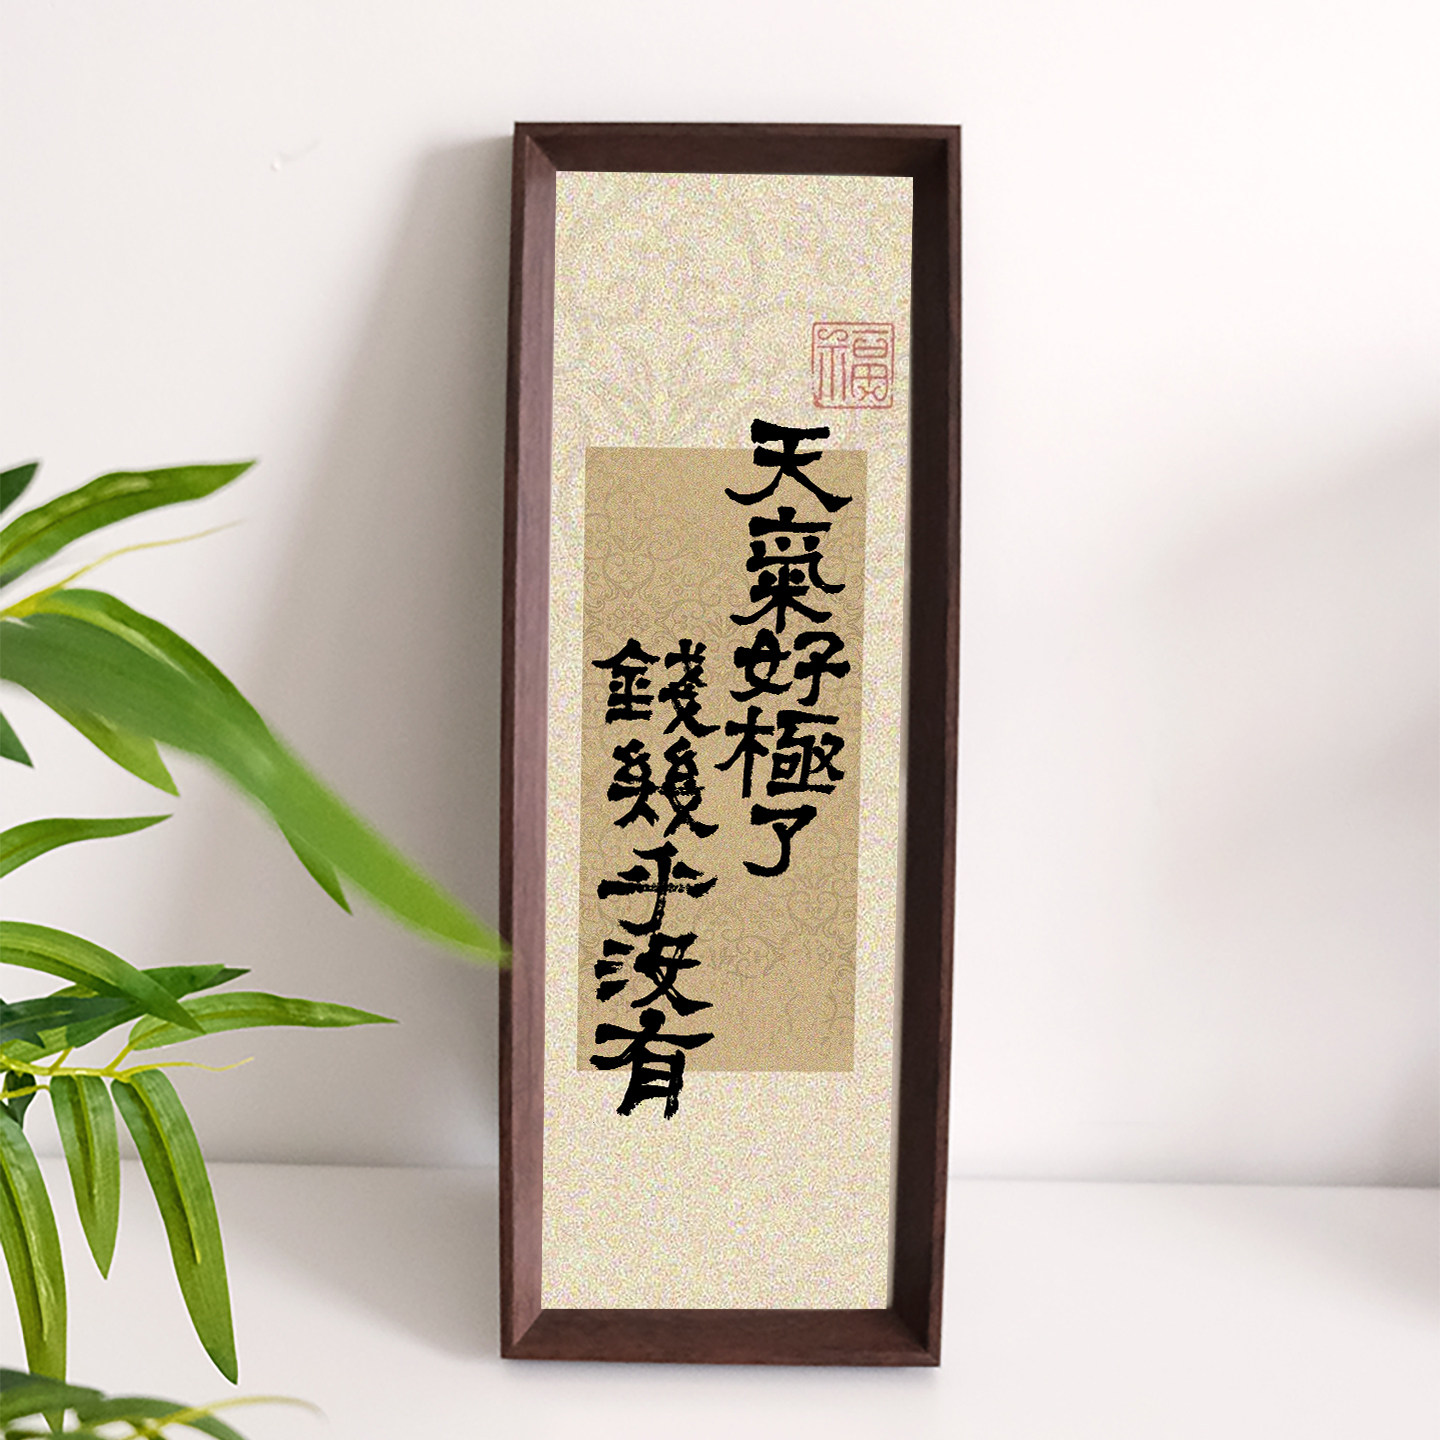 福
天氣好極了
錢幾乎没有